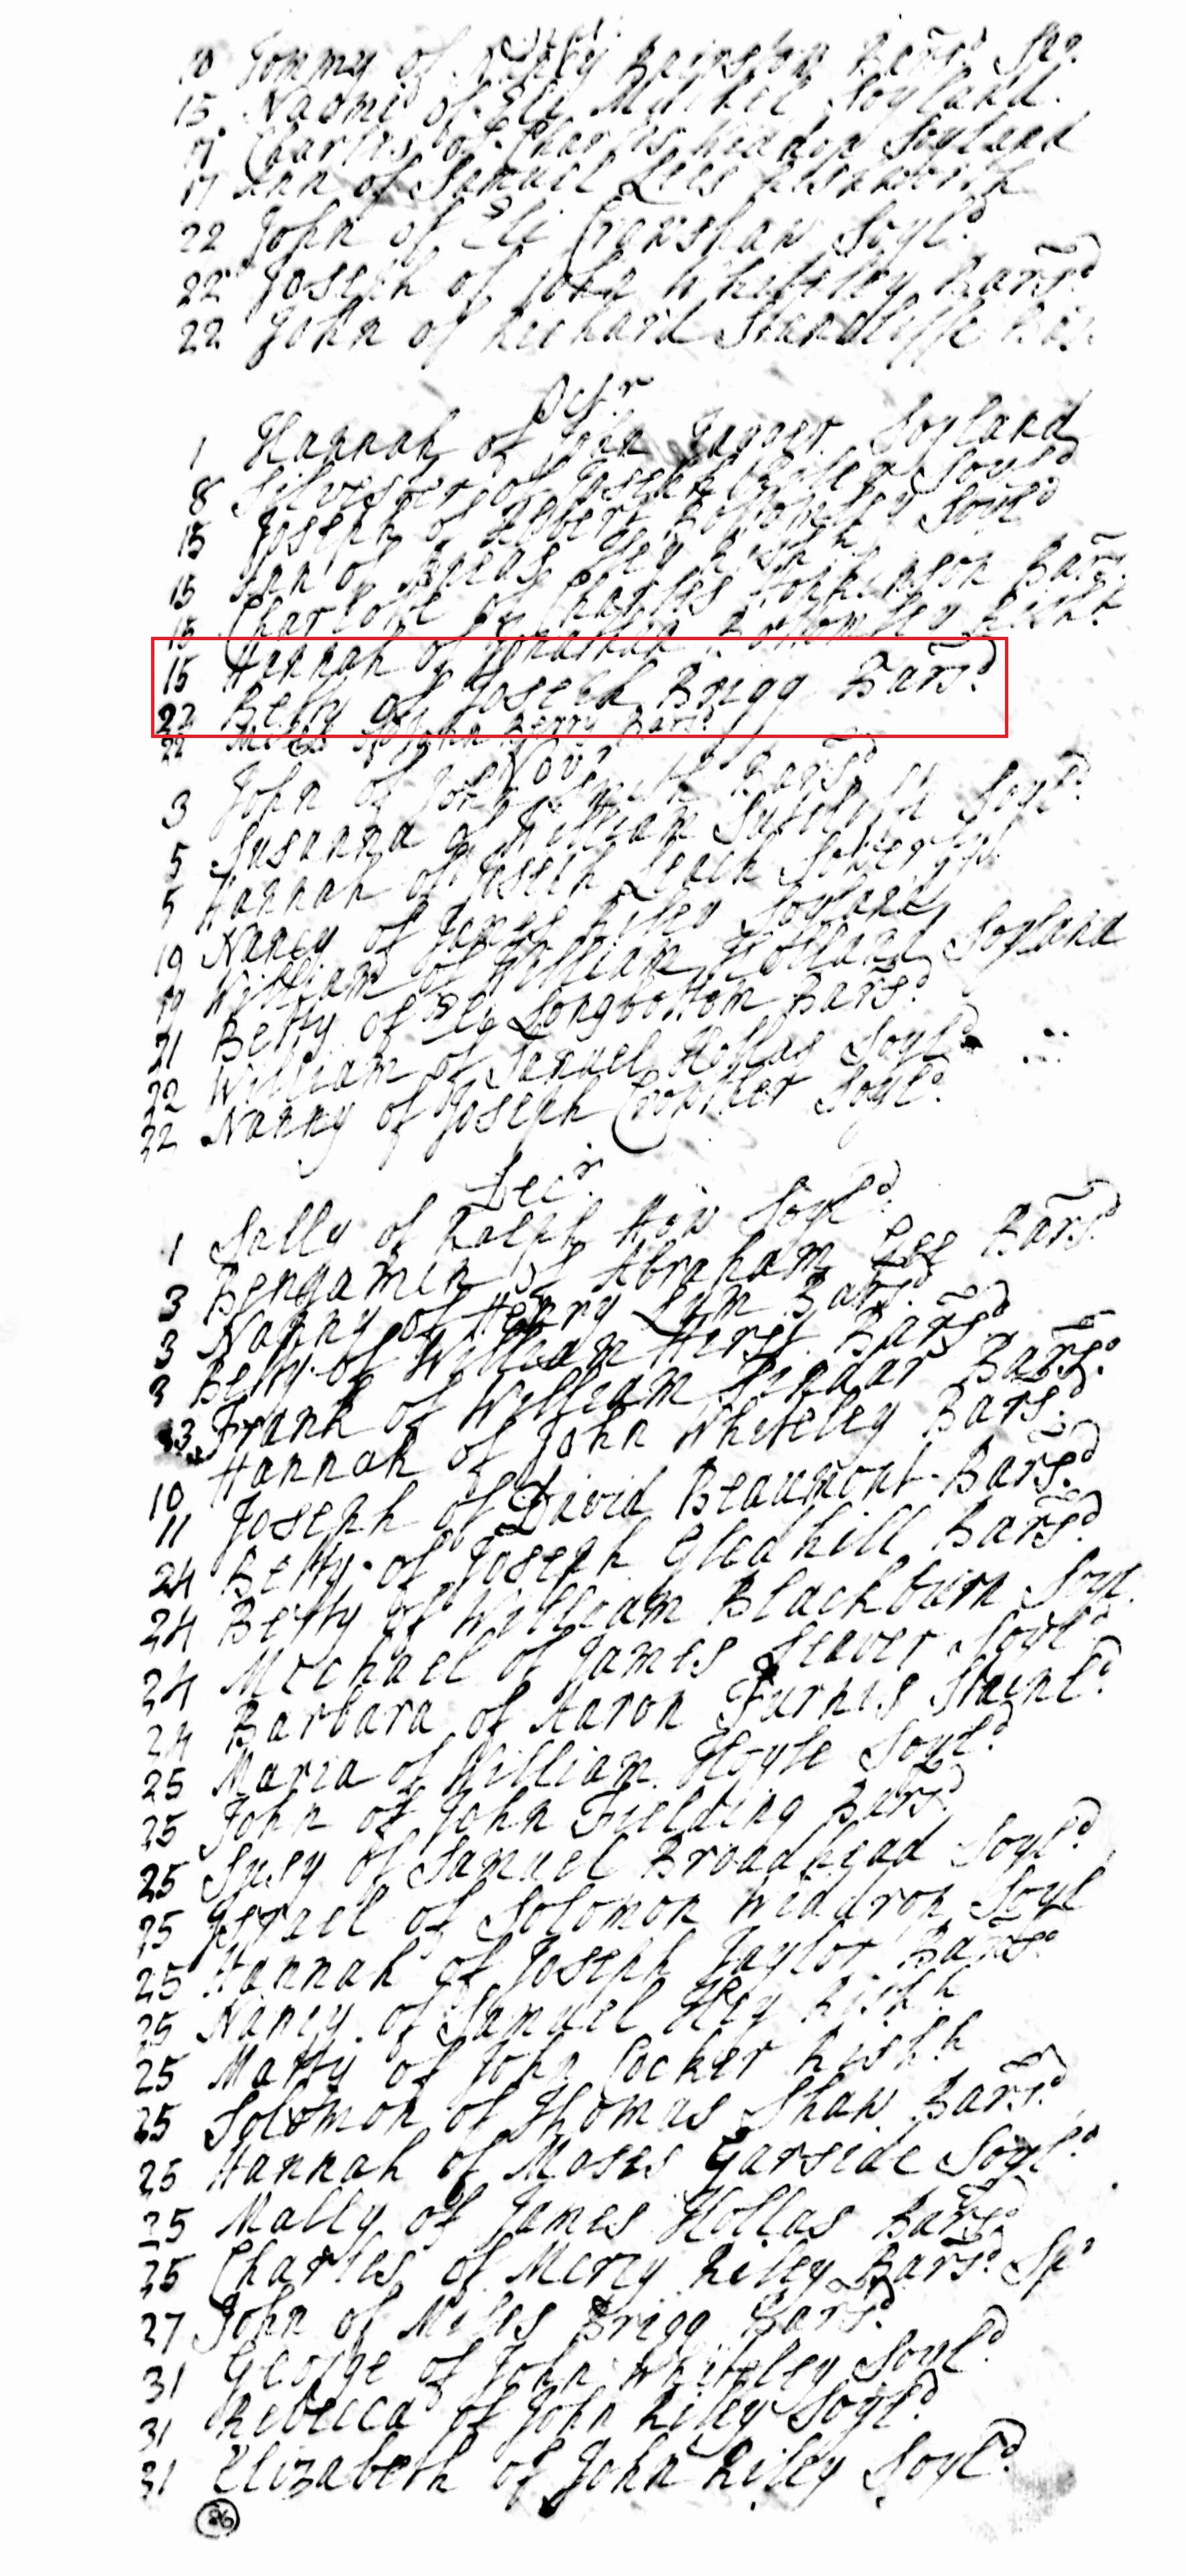 10 Tommy of Bairstow Bars.d Sp.
15 Naomi of Eli Mitchel Soyland.
17 Charles of Charles Widdop Soyland
17 Ann of Samuel Lees Rishworth
22 John of Eli Crawshaw Soyl.d
22 Joseph of John Whiteley Bars.d
22 John of Richard Standliffe
Oct.r
1 Hannah of John Soyland
8 Silvester of Joseph Soyl.d
15 Joseph of Albert Bottomley Soyl.d
15 Ann of Aneas Hey Rish.h
15 Charlote of Charles Hopkinson Bars.
15 Hannah of Jonathan Bottomley Rish.h
22 Betty of Joseph Brigg Bars.d
22 Miles of John Berry Bars.d
Nov.r
3 John of John Smith Bars.d
5 Susanna of William Sutcliff Soyl.d
5 Hannah of Joseph Leach
19 Nancy of James Riley Soyland
19 William of William Holland Soyland
21 Betty of Eli Longbottom Bars.d
22 William of Samuel Hollas Soyl.d
22 Nanny of Joseph Crowther Soyl.d
Dec.r
1 Sally of Ralph How Soyl.d
3 Bengamin of Abraham Gee Bars.d
3 Nanny of Henry Lum Bars.d
3 Betty of William Hirst Bars.d
3 Frank of William Pindar Bars.d
Hannah of John Whiteley Bars.d
10 Joseph of David Beaumont Bars.d
11 Betty of Joseph Gledhill Bars.d
24 Betty of William Blackburn Soyl.
24 Michael of James Seaver Soyl.d
24 Barbara of Aaron Furnis Stainl.d
24 Maria of William Hoyle Soyl.d
25 John of John Fielding Bars.d
25 Susy of Samuel Broadhead Soyl.d
25 of Solomon Widdron Soyl
25 Hannah of Joseph Taylor Bars.d
25 Nancy of Samuel Hey Rish.h
25 Matty of John Cocker Rish.h
25 Solomon of Thomas Shaw Bars.d
25 Hannah of Moses Garside Soyl.d
25 Mally of James Hollas Bars.d
25 Charles of Mercy Riley Bars.d Sp.
27 John of Miles Brigg Bars.d
31 George of John Whiteley Soyl.d
31 Rebecca of John Riley Soyl.d
31 Elizabeth of John Riley Soyl.d
86